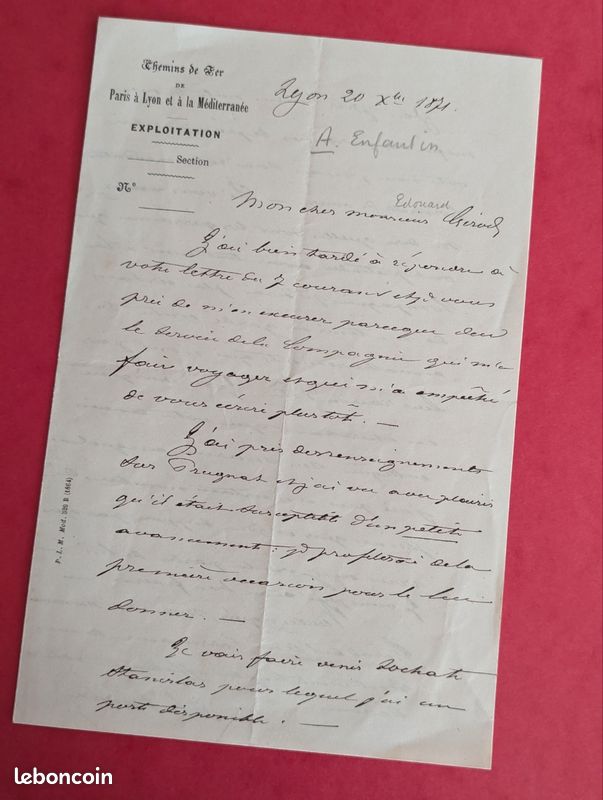 Chemins de Fer
DE
Paris à Lyon et à la Méditerranée
EXPLOITATION
Section
N°
Lyon 20 Xbre 1871.
A. Enfantin
Edouard
Mon cher monsieur Girod
J'ai bien tardé à répondre à
votre lettre du 7 courant et je vous
prie de m'en excuser parceque c'est
le service de la Compagnie qui m'a
fait voyager et qui m'a empêché
de vous écrire plus tôt. —
J'ai pris des renseignements
sur Prugnat et j'ai vu avec plaisir
qu'il était susceptible d'un petit
avancement : je profiterai de la
première occasion pour le lui
donner. —
Je vais faire venir Lochat
Stanislas pour lequel j'ai un
poste disponible. —
P. L. M. Mod. 326 B (1864)
leboncoin